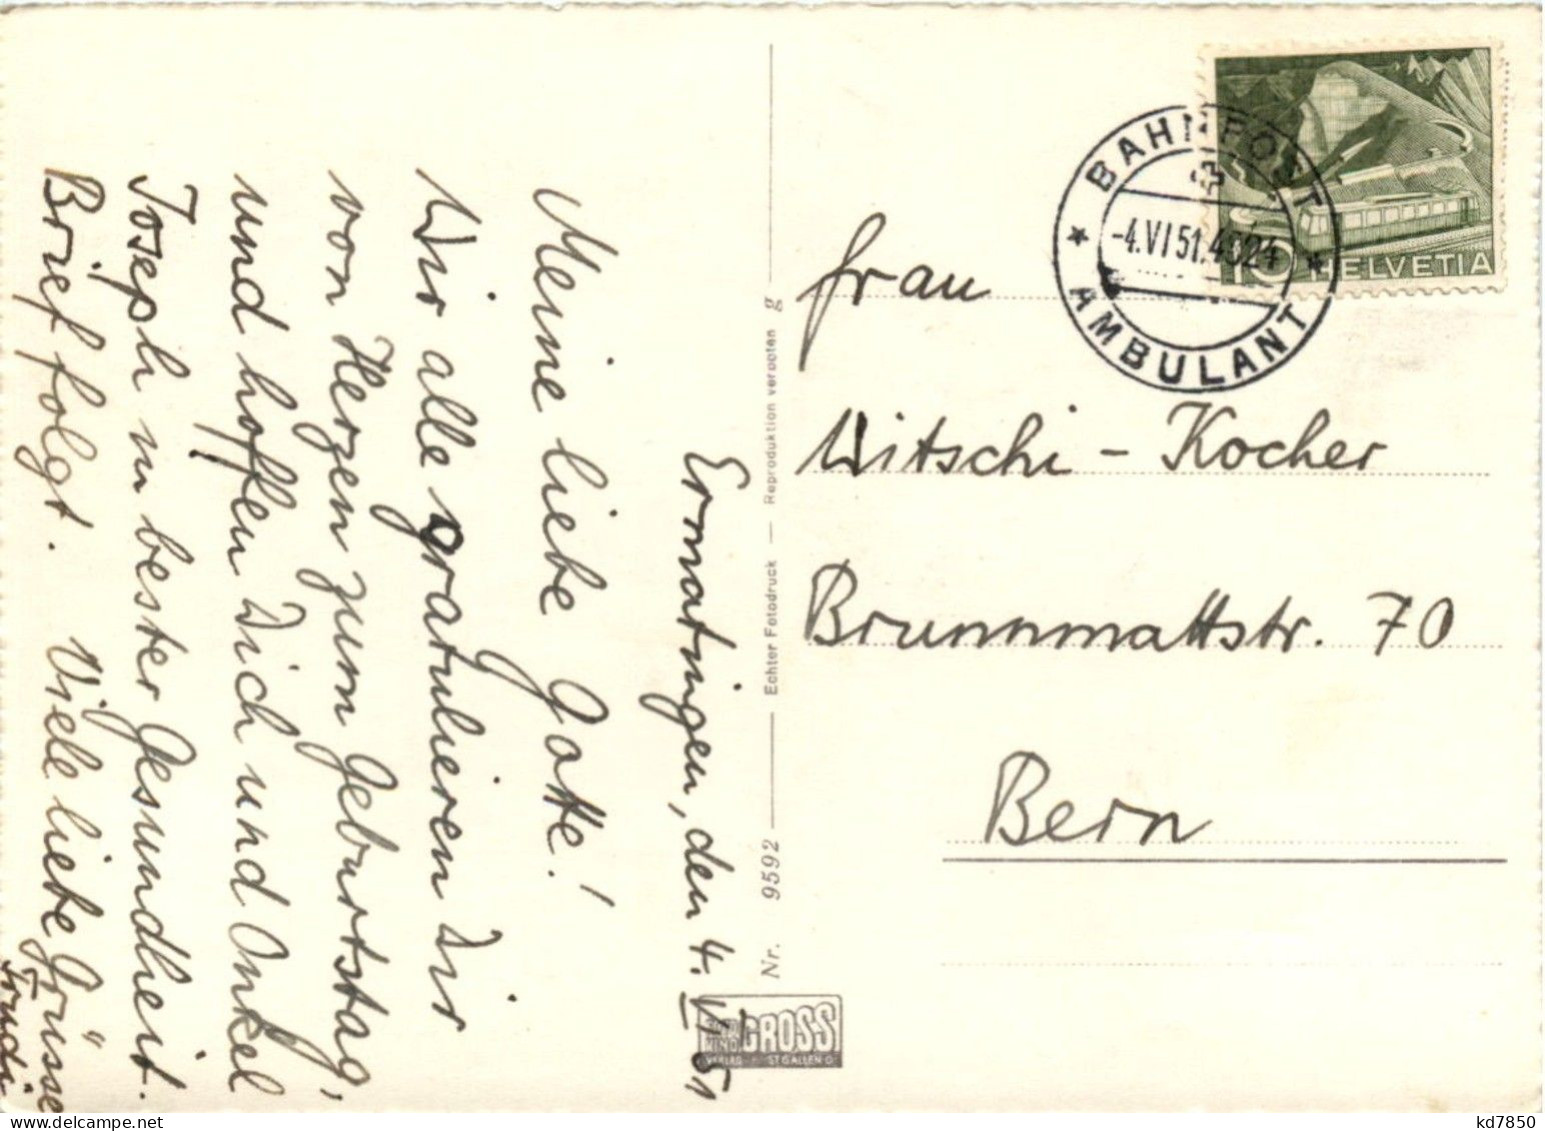 Ermatingen, den 4. VI. 51
Meine liebe Gotte!
Wir alle gratulieren Dir
von Herzen zum Geburtstag,
und hoffen Dich und Onkel
Joseph in bester Gesundheit.
Brief folgt. Viele liebe Grüsse
Trudi
Nr. 9592 Echter Fotodruck — Reproduktion verboten g
GROSS
ST. GALLEN
BAHNPOST
-4.VI 51. 4024
AMBULANT
10 HELVETIA
Frau
Witschi - Kocher
Brunnmattstr. 70
Bern
kd7850